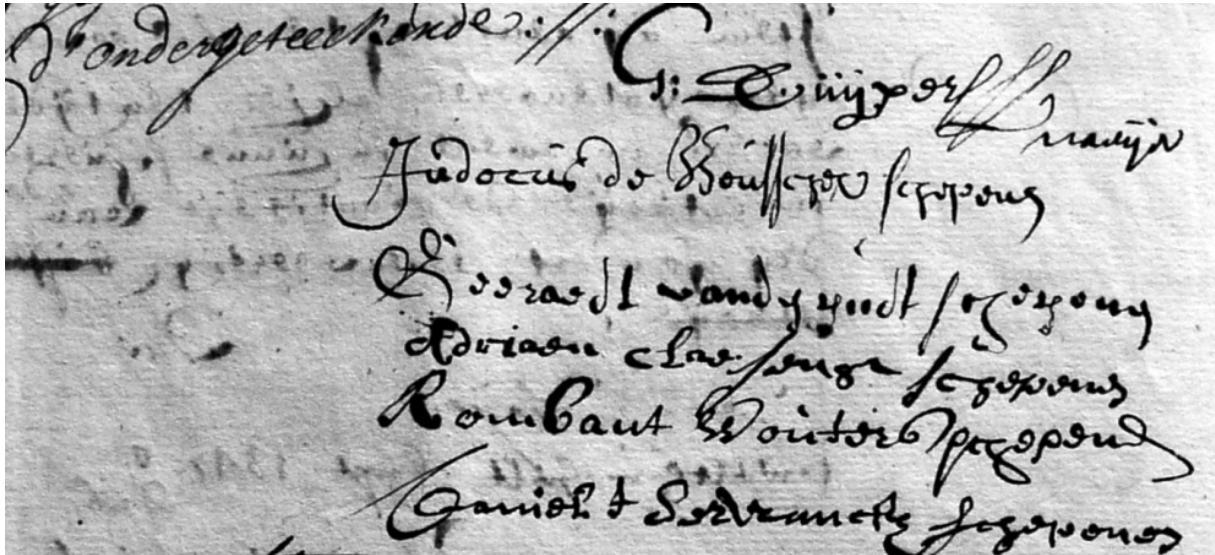 d'ondergeteeckende://:
G: D Cuijpers maijr
Judocus de Vousscher schepens
Geeraedt schepens
Adriaen claessens schepenen
Rombaut Wouters schepen
Daniel Servranckx schepenen